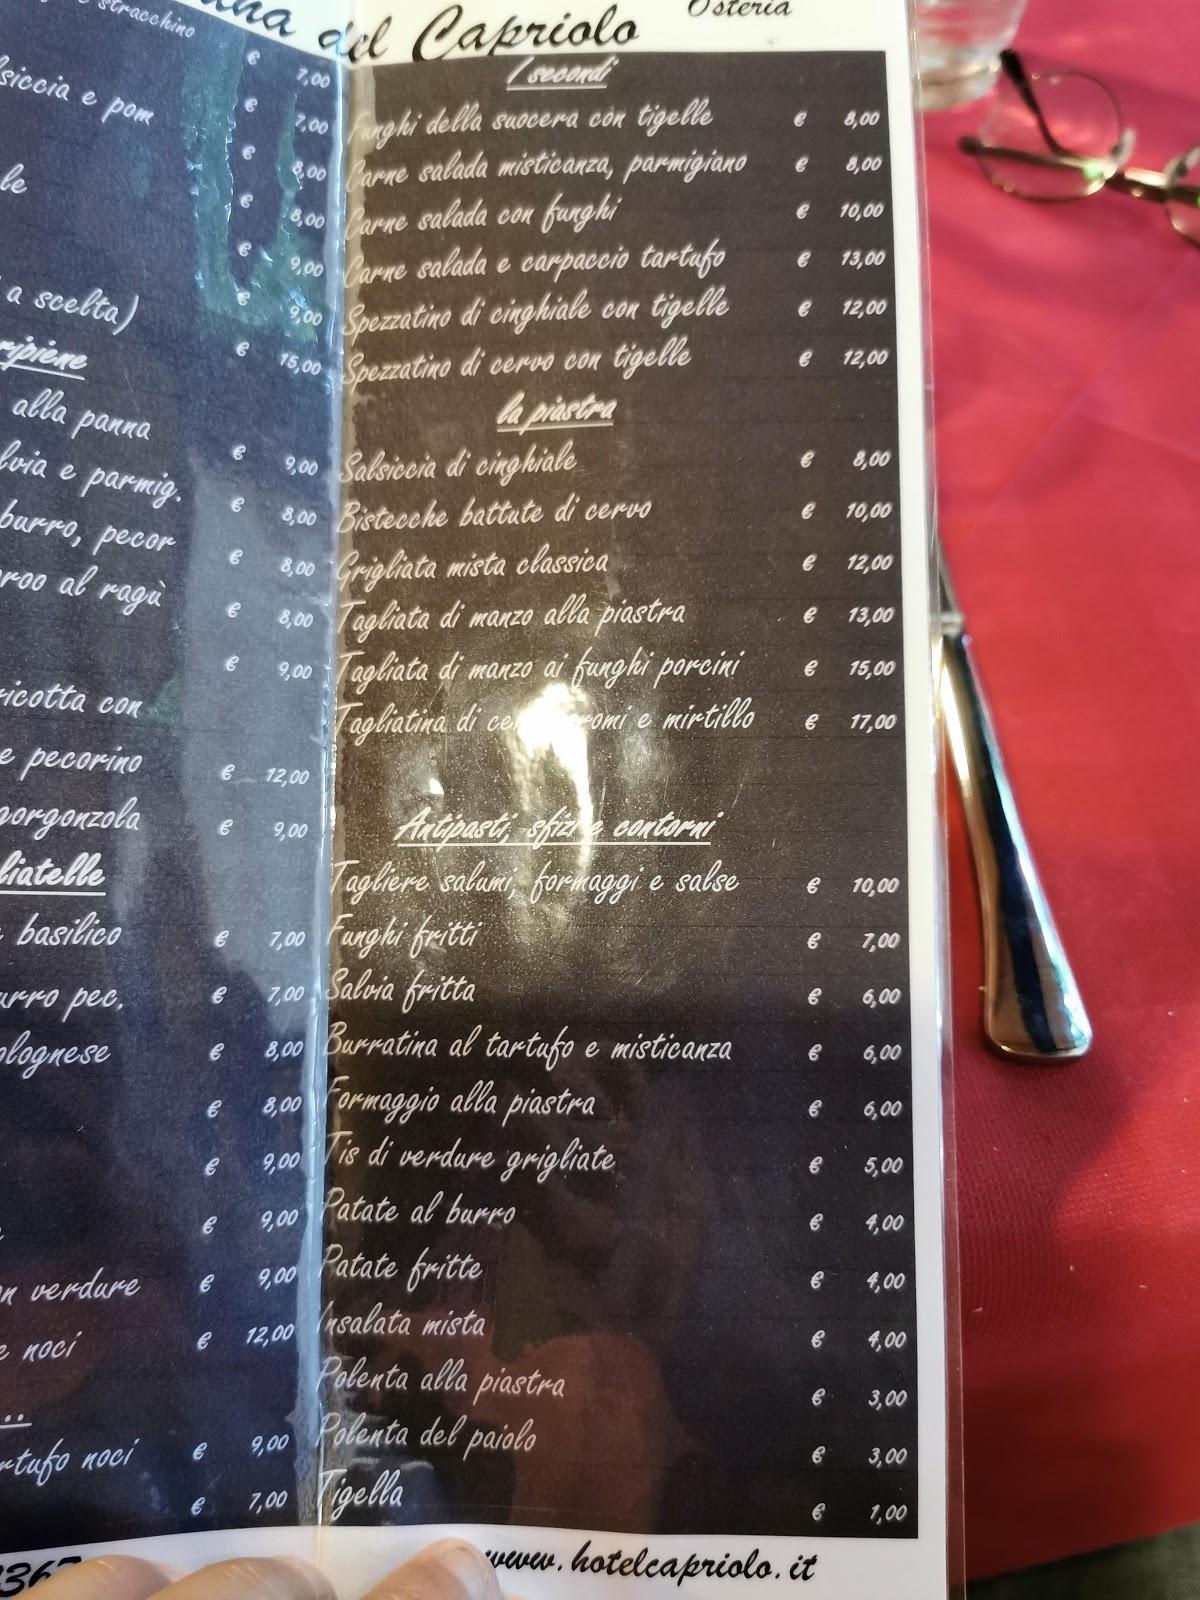 del Capriolo
Osteria
stracchino
€ 7,00
e pom
€ 7,00
€ 8,00
€ 8,00
€ 9,00
a scelta)
€ 9,00
ripiene
€ 15,00
alla panna
€ 9,00
e parmig.
€ 8,00
burro, pecor
€ 8,00
al ragù
€ 8,00
€ 9,00
ricotta con
e pecorino
€ 12,00
gorgonzola
€ 9,00
basilico
€ 7,00
pec.
€ 7,00
€ 8,00
€ 8,00
€ 9,00
€ 9,00
verdure
€ 9,00
e noci
€ 12,00
...
noci
€ 9,00
€ 7,00
I secondi
Funghi della suocera con tigelle € 8,00
Carne salada misticanza, parmigiano € 8,00
Carne salada con funghi € 10,00
Carne salada e carpaccio tartufo € 13,00
Spezzatino di cinghiale con tigelle € 12,00
Spezzatino di cervo con tigelle € 12,00
la piastra
Salsiccia di cinghiale € 8,00
Bistecche battute di cervo € 10,00
Grigliata mista classica € 12,00
Tagliata di manzo alla piastra € 13,00
Tagliata di manzo ai funghi porcini € 15,00
Tagliatina di e mirtillo € 17,00
Antipasti, sfizi e contorni
Tagliere salumi, formaggi e salse € 10,00
Funghi fritti € 7,00
Salvia fritta € 6,00
Burratina al tartufo e misticanza € 6,00
Formaggio alla piastra € 6,00
Tis di verdure grigliate € 5,00
Patate al burro € 4,00
Patate fritte € 4,00
Insalata mista € 4,00
Polenta alla piastra € 3,00
Polenta del paiolo € 3,00
Tigella € 1,00
www.hotelcapriolo.it